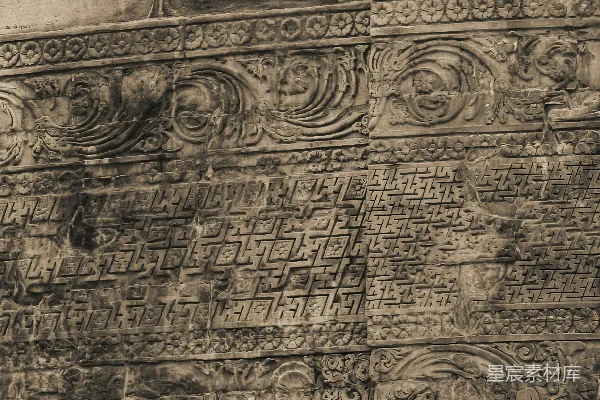 星宸素材库